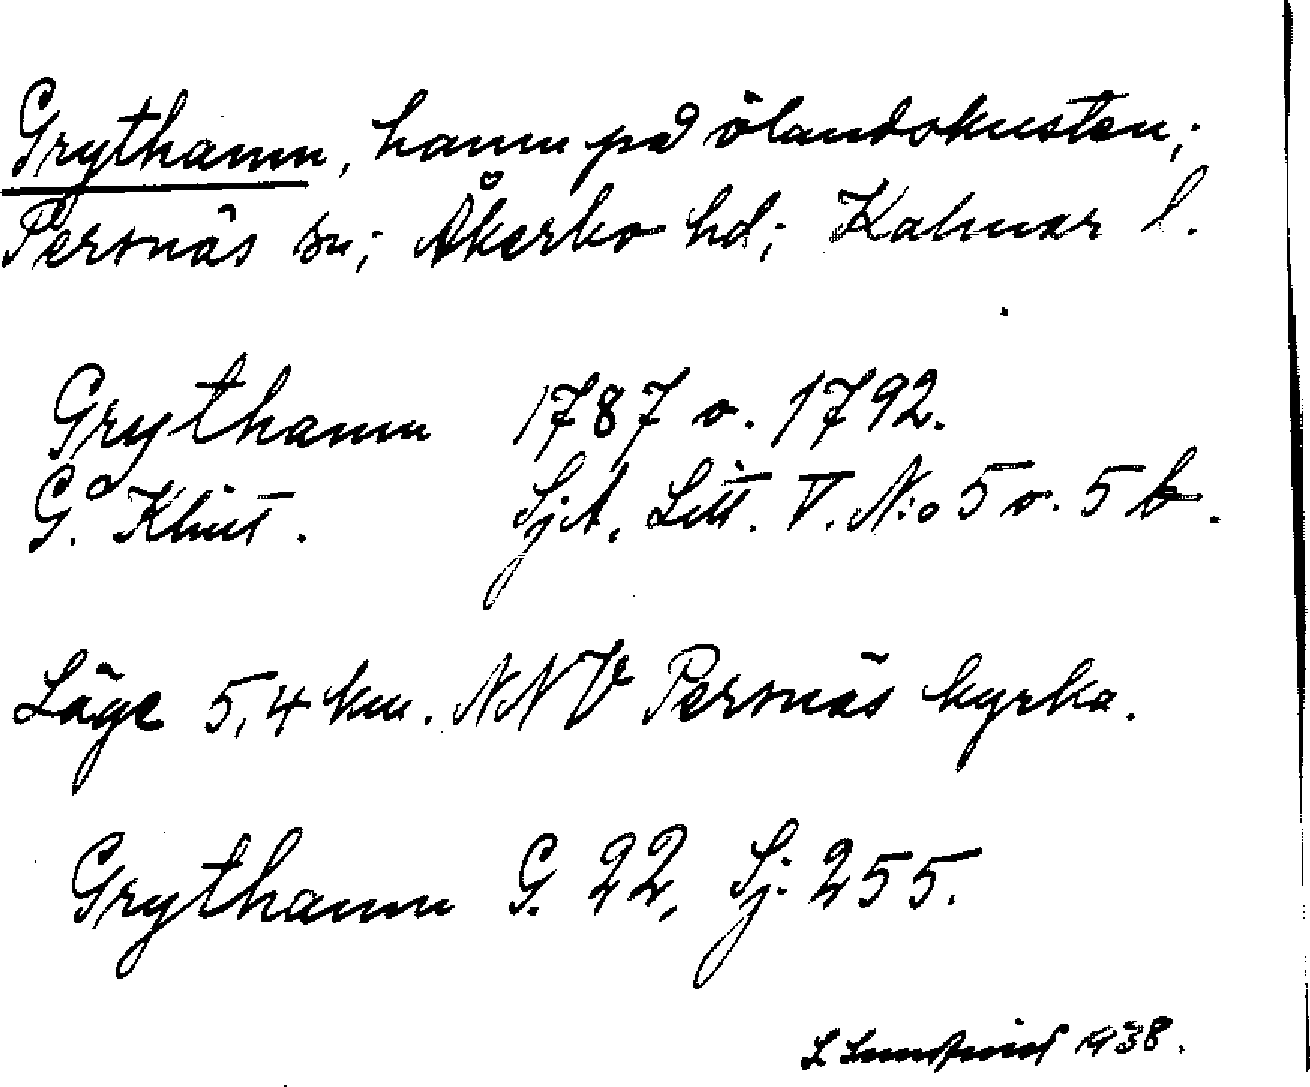 Grythamn, hamn på ölandskusten;
Persnäs sn; Åkerbo hd; Kalmar l.
Grythamn 1787 o. 1792.
G. Klint. SjA, Litt. V. N:o 5 o. 5 b.
Läge 5,4 km. NNV Persnäs kyrka.
Grythamn G. 22, Sj. 255.
L Lundqvist 1938.